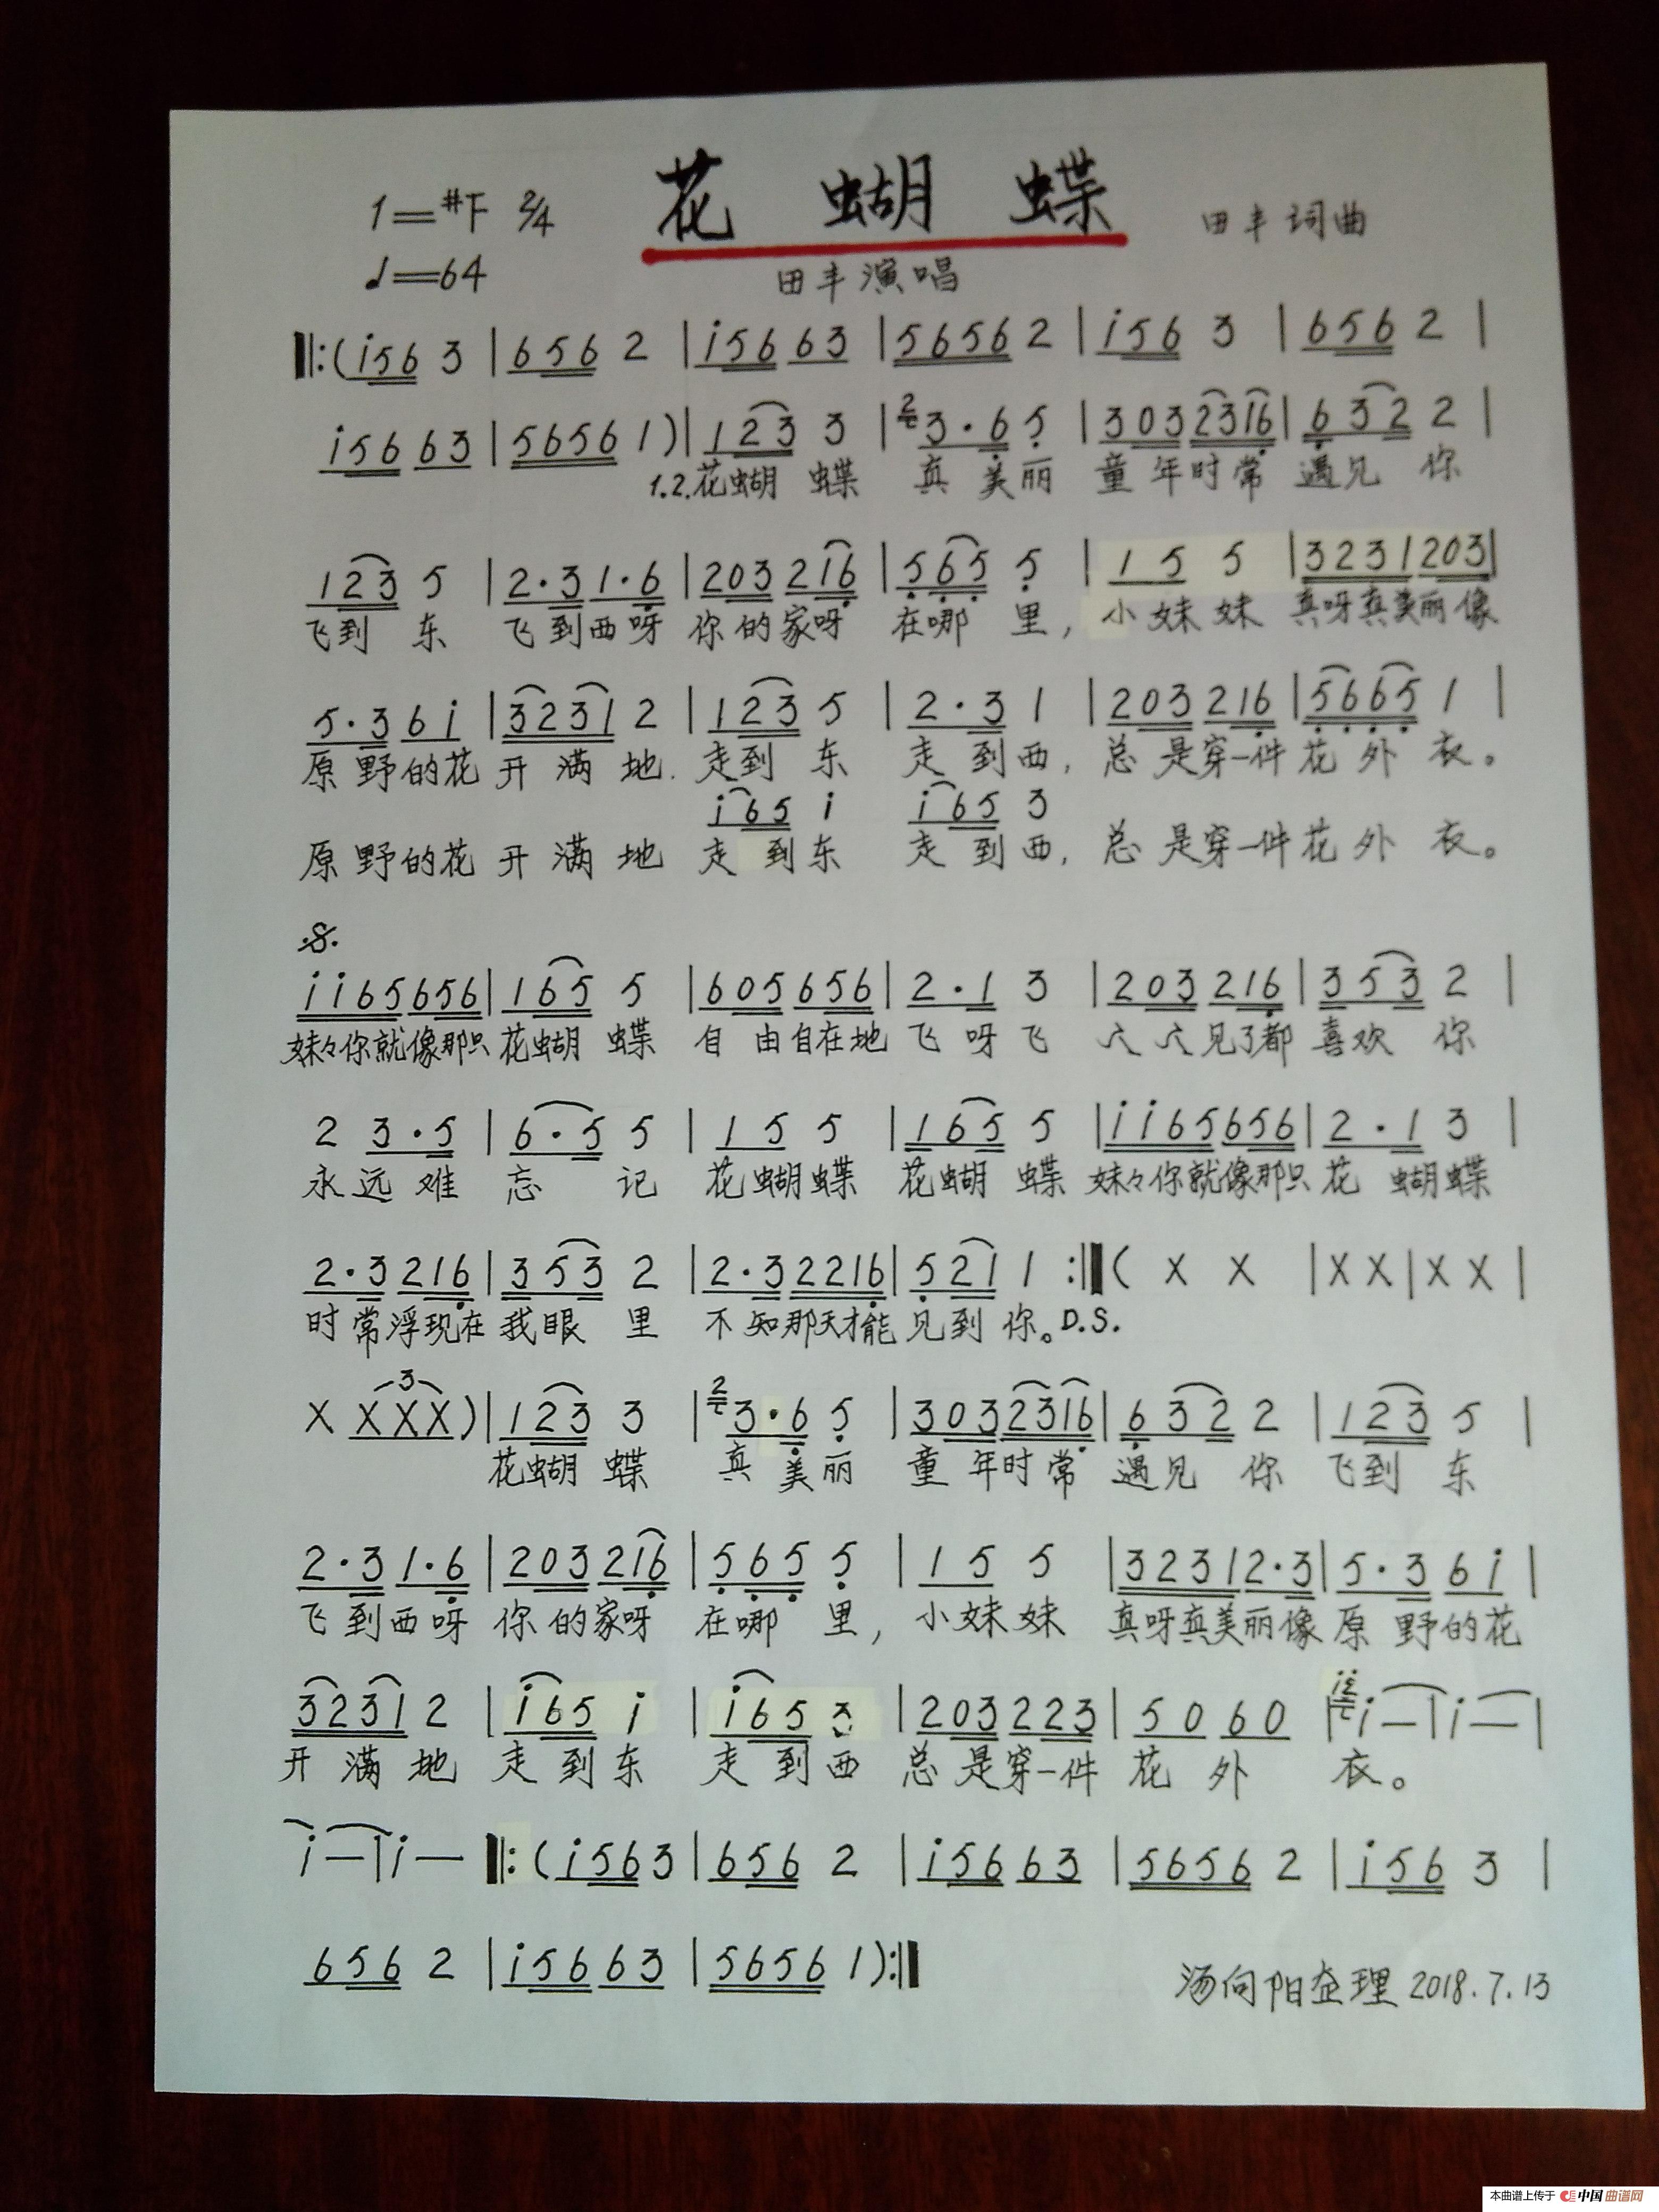 1=#F 2/4 花 蝴 蝶 田丰词曲
♩=64 田丰演唱
‖:(i56 3 | 656 2 | i56 63 | 5656 2 | i56 3 | 656 2 |
i56 63 | 5656 1)| 123 3 | 3·6 5 | 303 2316 | 632 2 |
1.2.花蝴 蝶 真 美丽 童 年时常 遇见 你
123 5 | 2·3 1·6 | 203 216 | 565 5 | 15 5 | 3231 203 |
飞到 东 飞到西呀 你的家呀 在哪 里, 小妹妹 真呀真美丽像
5·3 6i | 3231 2 | 123 5 | 2·3 1 | 203 216 | 5665 1 |
原野的花 开满地. 走到 东 走到西, 总是穿一件 花外 衣。
i65 i i65 3
原野的花 开满地 走到东 走到西, 总是穿一件花外 衣。
𝄋
ii65 656 | 165 5 | 605 656 | 2·1 3 | 203 216 | 353 2 |
妹々你就像那只 花蝴 蝶 自由自在地 飞呀飞 人人见了都 喜欢 你
2 3·5 | 6·5 5 | 15 5 | 165 5 | ii65 656 | 2·1 3 |
永远难 忘 记 花蝴蝶 花蝴 蝶 妹々你就像那只 花 蝴蝶
2·3 216 | 353 2 | 2·3 2216 | 521 1 :‖( X X | X X | X X |
时常浮现在 我眼 里 不知那天才能 见到 你。D.S.
X XXX)| 123 3 | 3·6 5 | 303 2316 | 632 2 | 123 5 |
花蝴 蝶 真 美丽 童 年时常 遇见 你 飞到 东
2·3 1·6 | 203 216 | 565 5 | 15 5 | 3231 2·3 | 5·3 6i |
飞到西呀 你的家呀 在哪 里, 小妹妹 真呀真美丽像 原野的花
3231 2 | i65 i | i65 3 | 203 223 | 50 60 | i — | i — |
开满地 走到东 走到西 总是穿一件 花外 衣。
i — | i — ‖:(i563 | 656 2 | i56 63 | 5656 2 | i56 3 |
656 2 | i56 63 | 5656 1):‖
汤向阳整理 2018.7.13
本曲谱上传于 中国曲谱网